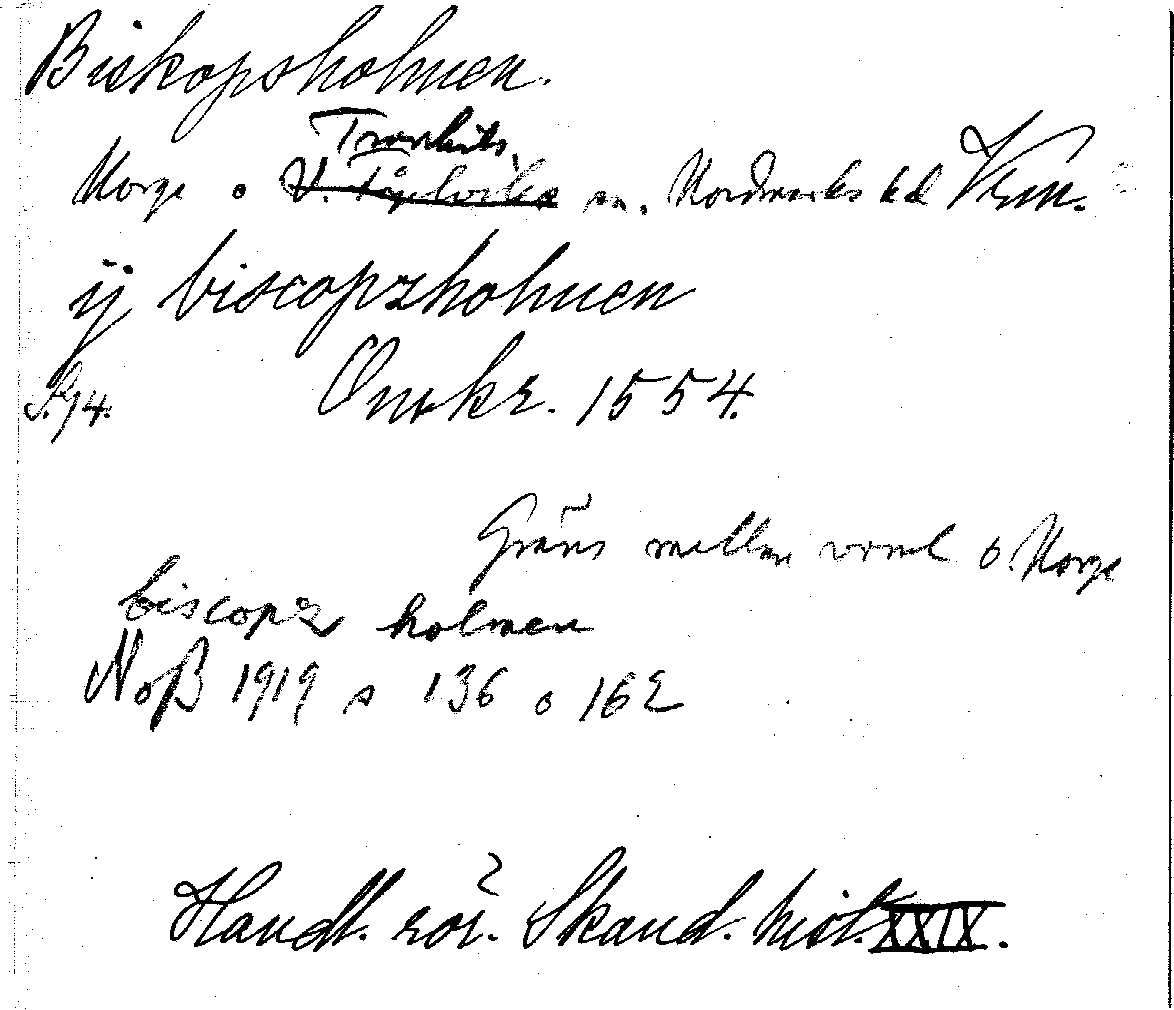 Biskopsholmen.
Trankils
Norge o V. Fågelviks sn. Nordmarks hd Vrm.
ij biscopzholmen
S. 74. Omkr. 1554.
Gräns mellan vrml o. Norge
biscopz holmen
NoB 1919 s 136 o 162
Handl. rör. Skand. hist. XXIX.